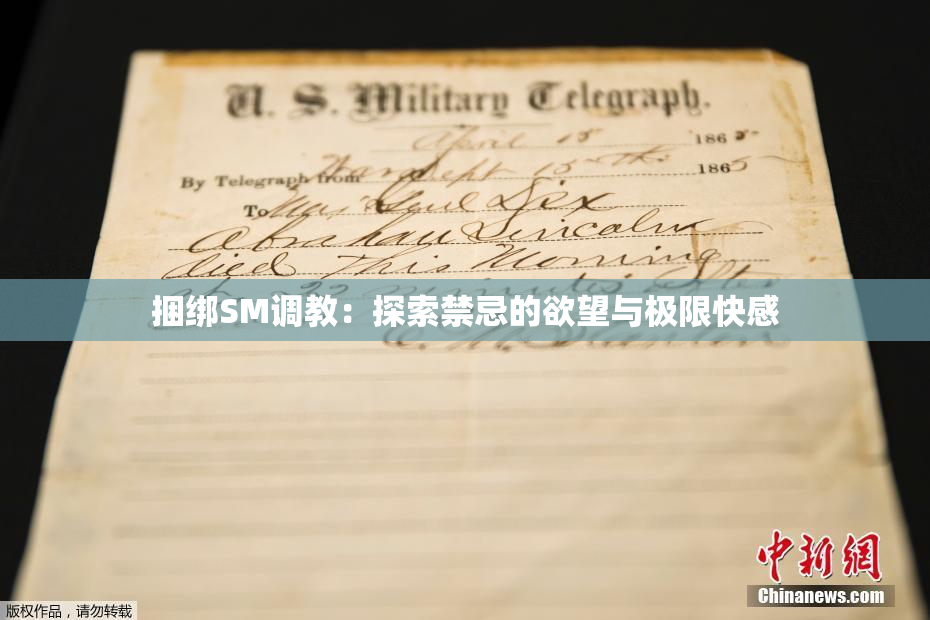 U. S. Military Telegraph.
April 15 1865
By Telegraph from War Dept 15th 1865
To Maj Genl Dix
Abraham Lincoln
died This Morning
at 22 minutes after
捆绑SM调教：探索禁忌的欲望与极限快感
E. M. Stanton
中新网
Chinanews.com
版权作品，请勿转载